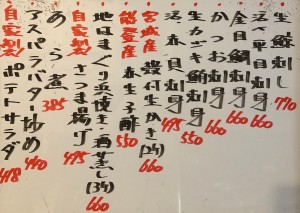 生鯖刺し 770
活〆平目刺身 660
金目鯛刺身 660
かつお刺身 660
生カンパチ刺身 550
活赤貝刺身 495
宮城産殻付生かき(2ケ) 660
能登産生子酢 550
地はまぐり浜焼き・酒蒸し(3ケ) 660
自家製さつま揚げ 495
あら煮 385
アスパラバター炒め 440
自家製ポテトサラダ 418